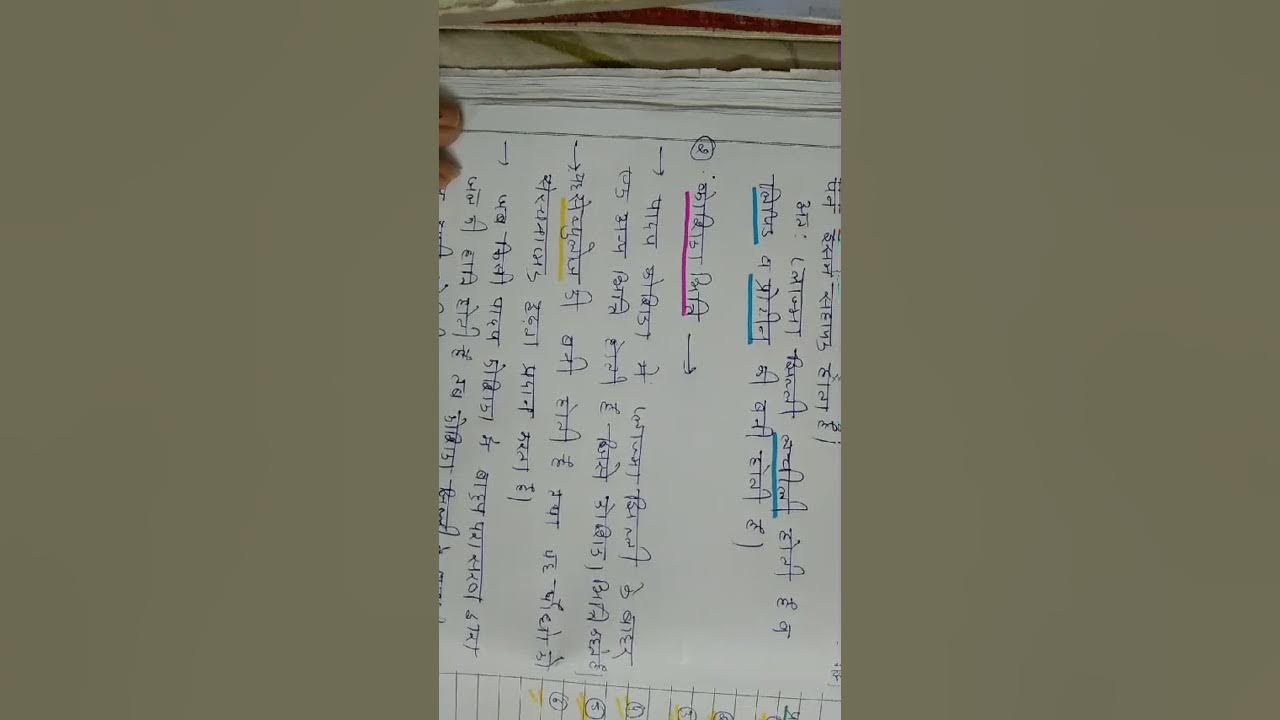 इसमें सहायक होता है।
अतः प्लाज्मा झिल्ली लचीली होती है व
लिपिड व प्रोटीन की बनी होती है।
② कोशिका भित्ति →
→ पादप कोशिका में प्लाज्मा झिल्ली के बाहर
एक अन्य भित्ति होती है जिसे कोशिका भित्ति कहते हैं।
→ यह सेल्युलोज की बनी होती है तथा यह पौधो को
संरचनात्मक दृढ़ता प्रदान करता है।
→ जब किसी पादप कोशिका में बाह्य परासरण द्वारा
जल की हानि होती है तब कोशिका झिल्ली
④
⑤
⑥